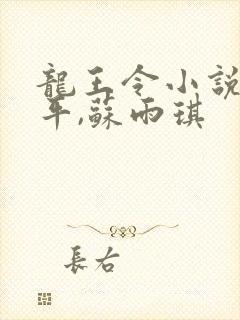 龍王令小說
平,蘇雨琪
長右